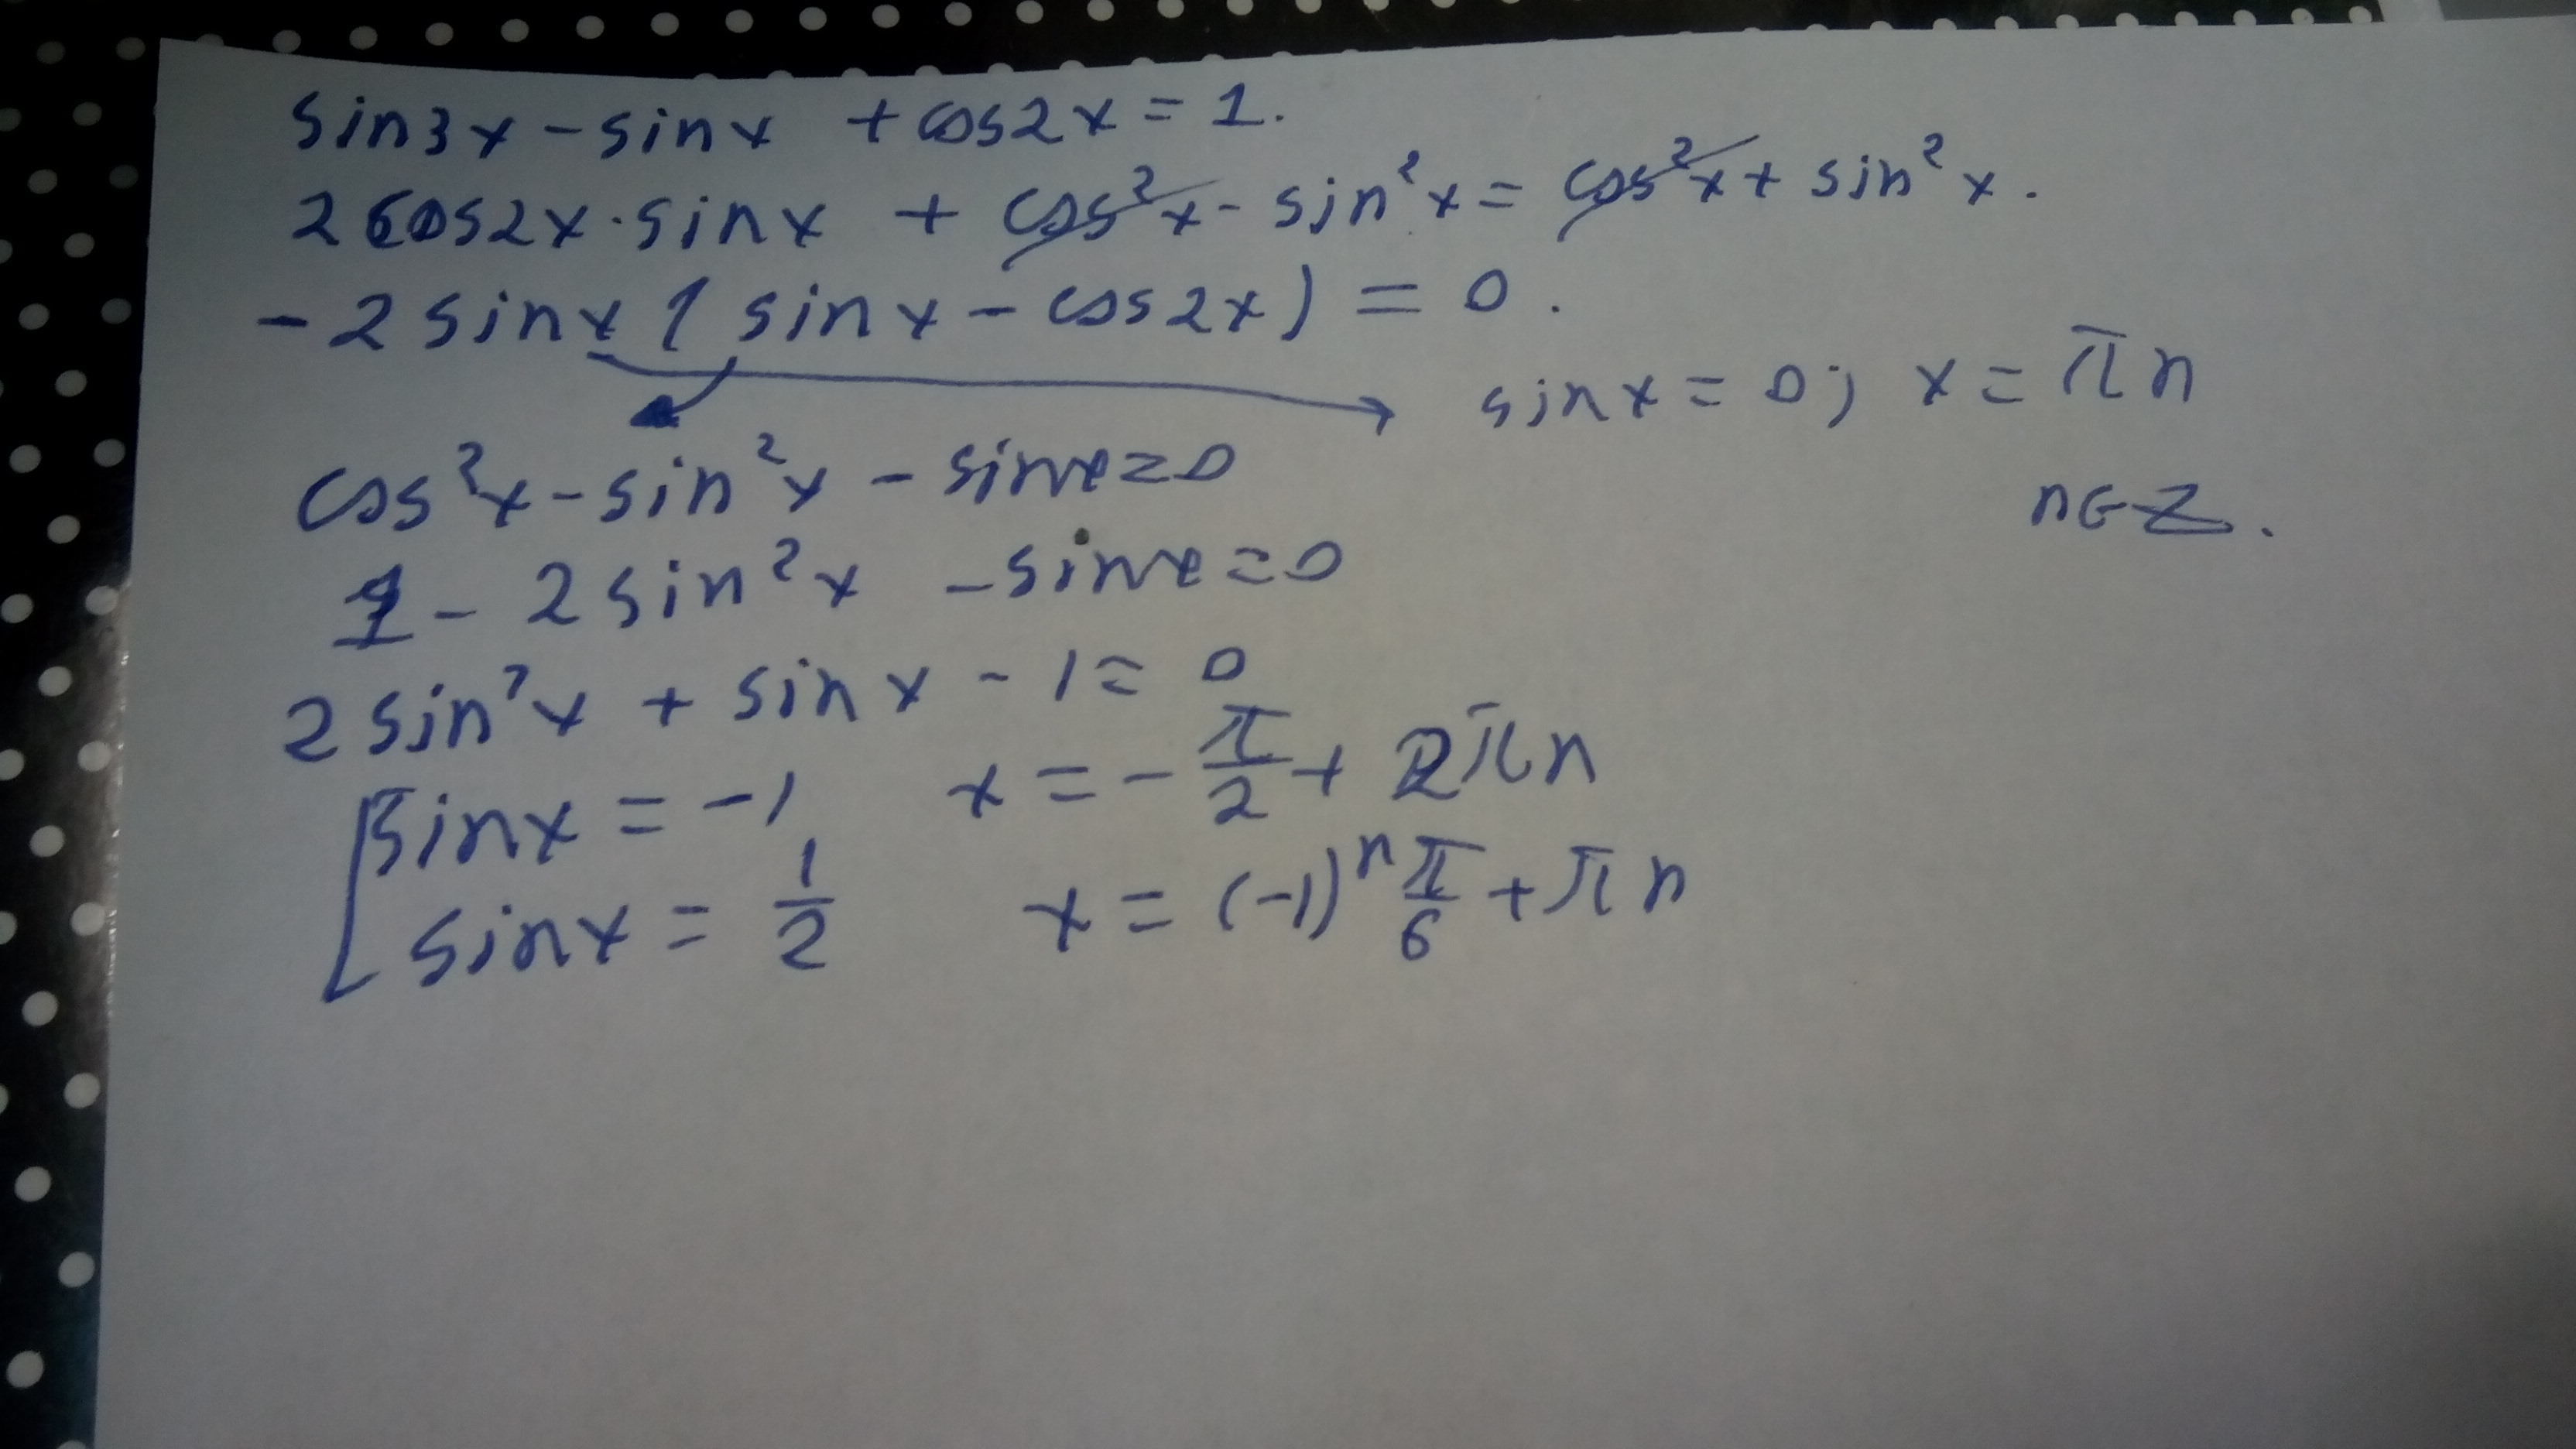 sin3x - sinx + cos2x = 1.
2cos2x·sinx + cos²x - sin²x = cos²x + sin²x.
-2sinx(sinx - cos2x) = 0.
sinx = 0; x = πn
n∈Z.
cos²x - sin²x - sinx = 0
1 - 2sin²x - sinx = 0
2sin²x + sinx - 1 = 0
[sinx = -1 x = -π/2 + 2πn
sinx = 1/2 x = (-1)ⁿ π/6 + πn